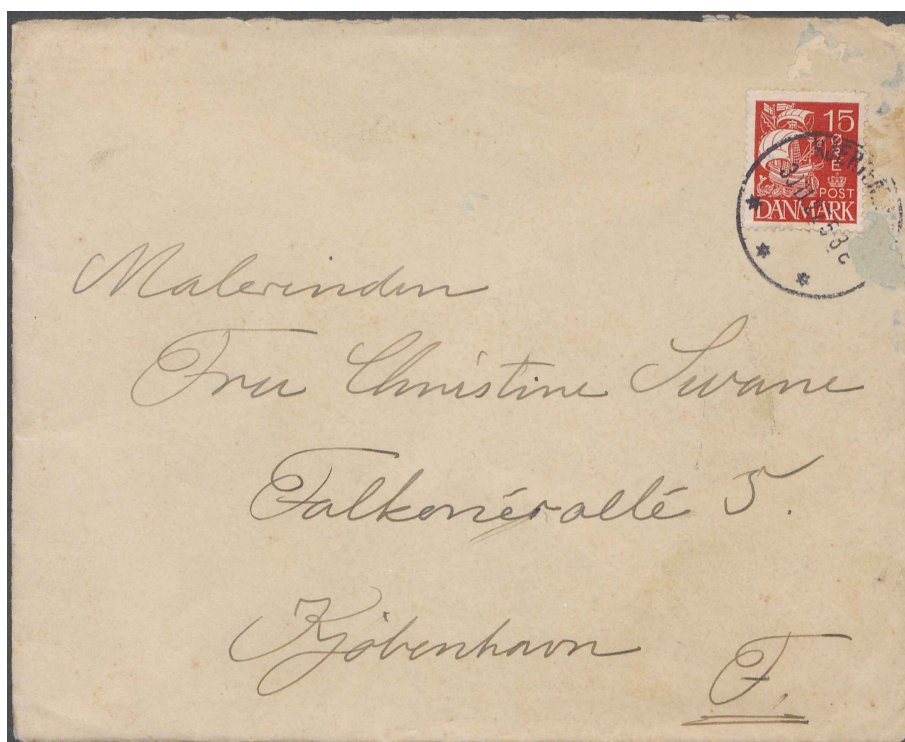 15
ØRE
POST
DANMARK
Malerinden
Fru Christine Swane
Falkonérallé 5.
Kjøbenhavn
F.